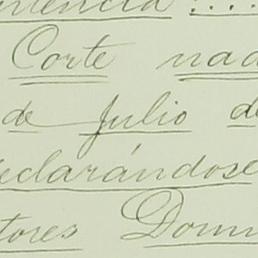 ntencia
Corte nad
de Julio de
eclarándose
tores Domi